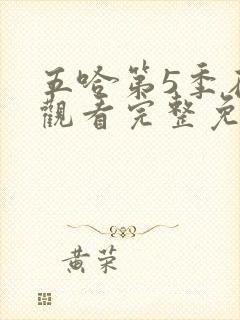 五哈第5季
觀看完整免
黄荣